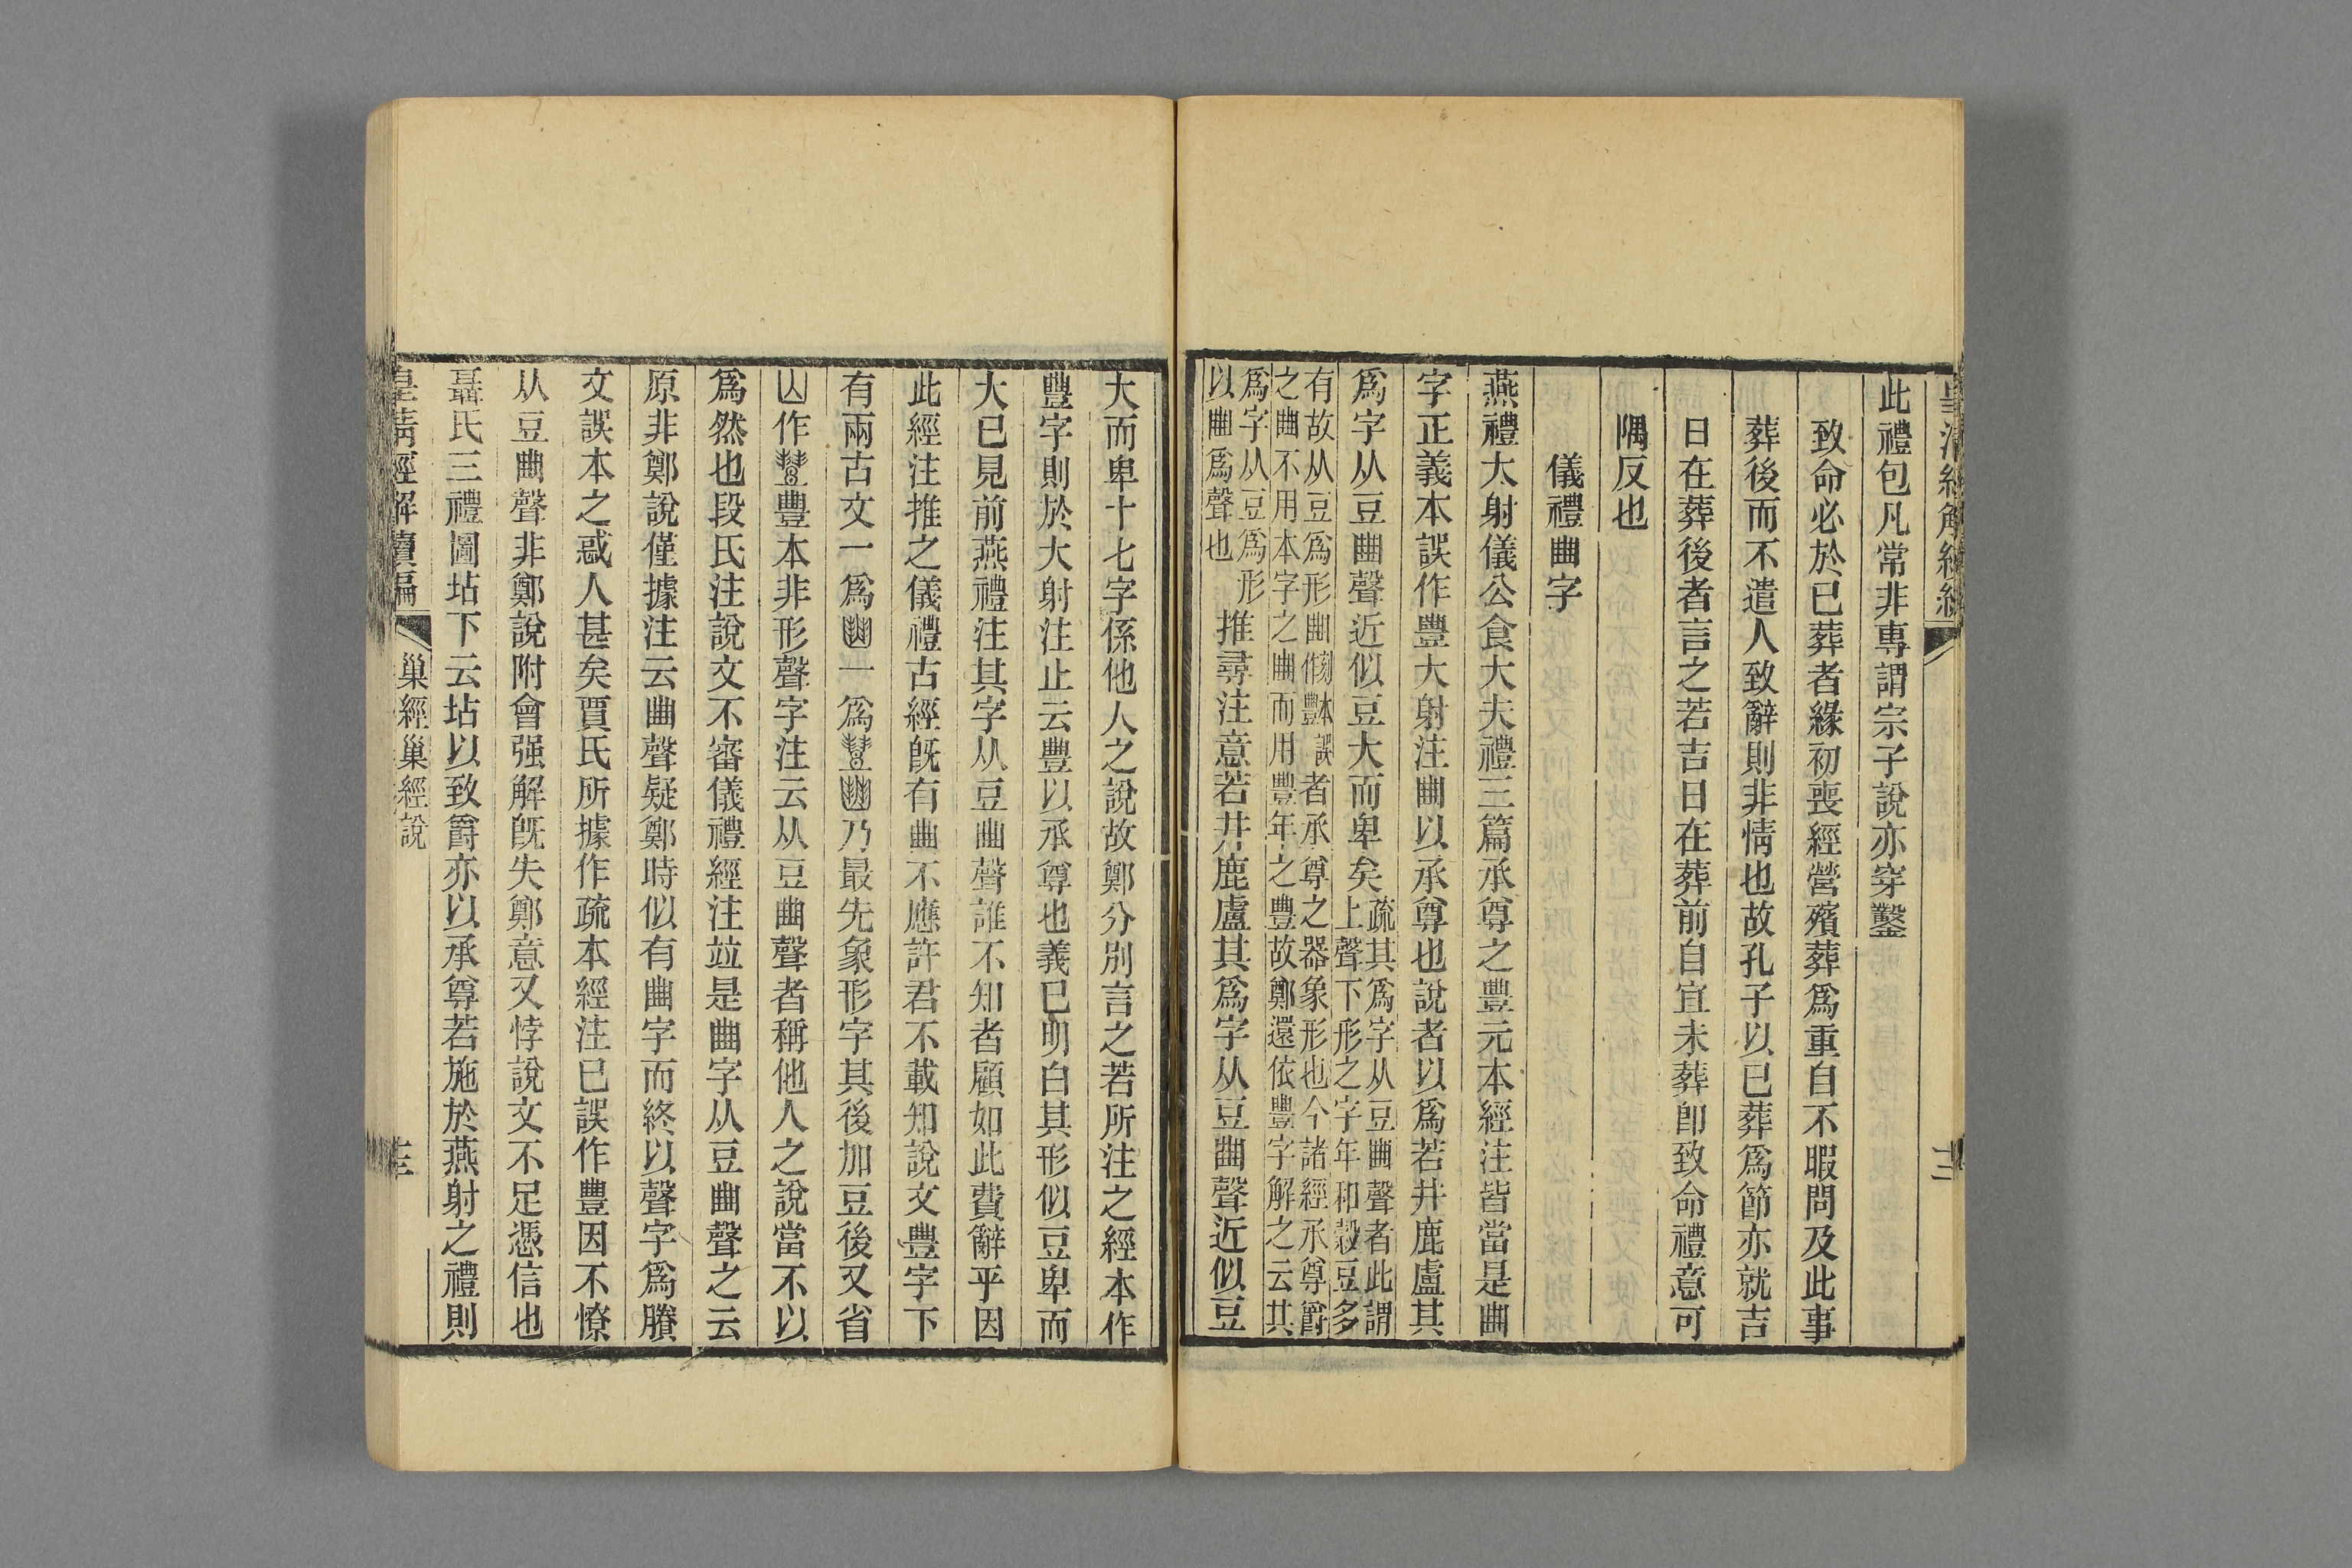 此禮包凡常非專謂宗子說亦穿鑿
致命必於已葬者緣初喪經營殯葬爲重自不暇問及此事
葬後而不遣人致辭則非情也故孔子以已葬爲節亦就吉
日在葬後者言之若吉日在葬前自宜未葬卽致命禮意可
隅反也
儀禮𧯮字
燕禮大射儀公食大夫禮三篇承尊之豐元本經注皆當是𧯮
字正義本誤作豐大射注𧯮以承尊也說者以爲若井鹿盧其
爲字从豆𧯮聲近似豆大而卑矣
疏其爲字从豆𧯮聲者此謂
上聲下形之字年和穀豆多
有故从豆爲形𧯮作豔本誤者承尊之器象形也今諸經承尊爵
之𧯮不用本字之𧯮而用豐年之豐故鄭還依豐字解之云其
爲字从豆爲形
以𧯮爲聲也
推尋注意若井鹿盧其爲字从豆𧯮聲近似豆
大而卑十七字係他人之說故鄭分別言之若所注之經本作
豐字則於大射注止云豐以承尊也義已明白其形似豆卑而
大已見前燕禮注其字从豆𧯮聲誰不知者顧如此費辭乎因
此經注推之儀禮古經旣有𧯮不應許君不載知說文豐字下
有兩古文一爲一爲乃最先象形字其後加豆後又省
凵作豐本非形聲字注云从豆𧯮聲者稱他人之說當不以
爲然也段氏注說文不審儀禮經注竝是𧯮字从豆𧯮聲之云
原非鄭說僅據注云𧯮聲疑鄭時似有𧯮字而終以聲字爲賸
文誤本之惑人甚矣賈氏所據作疏本經注已誤作豐因不憭
从豆𧯮聲非鄭說附會强解旣失鄭意又悖說文不足憑信也
聶氏三禮圖坫下云坫以致爵亦以承尊若施於燕射之禮則
皇淸經解續編
巢經巢經說